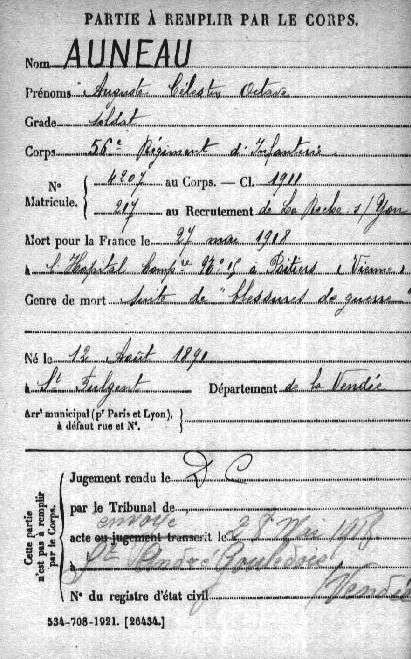 PARTIE À REMPLIR PAR LE CORPS.
Nom AUNEAU
Prénoms Auguste Célestin Octave
Grade soldat
Corps 56e Régiment d'Infanterie
N° Matricule. { 4207 au Corps. — Cl. 1911
217 au Recrutement de La Roche s/Yon
Mort pour la France le 27 mai 1918
à l'Hopital Compre N° 15 à Poitiers (Vienne)
Genre de mort suite de "blessures de guerre"
Né le 12 Août 1891
à St Fulgent Département de la Vendée
Arrt municipal (pr Paris et Lyon), à défaut rue et N°. }
Cette partie n'est pas à remplir par le Corps.
Jugement rendu le D C
par le Tribunal de
envoyé
acte ou jugement transcrit le 28 Mai 1918
à St André Gouledoie
Vendée
N° du registre d'état civil
534-708-1921. [26434.]